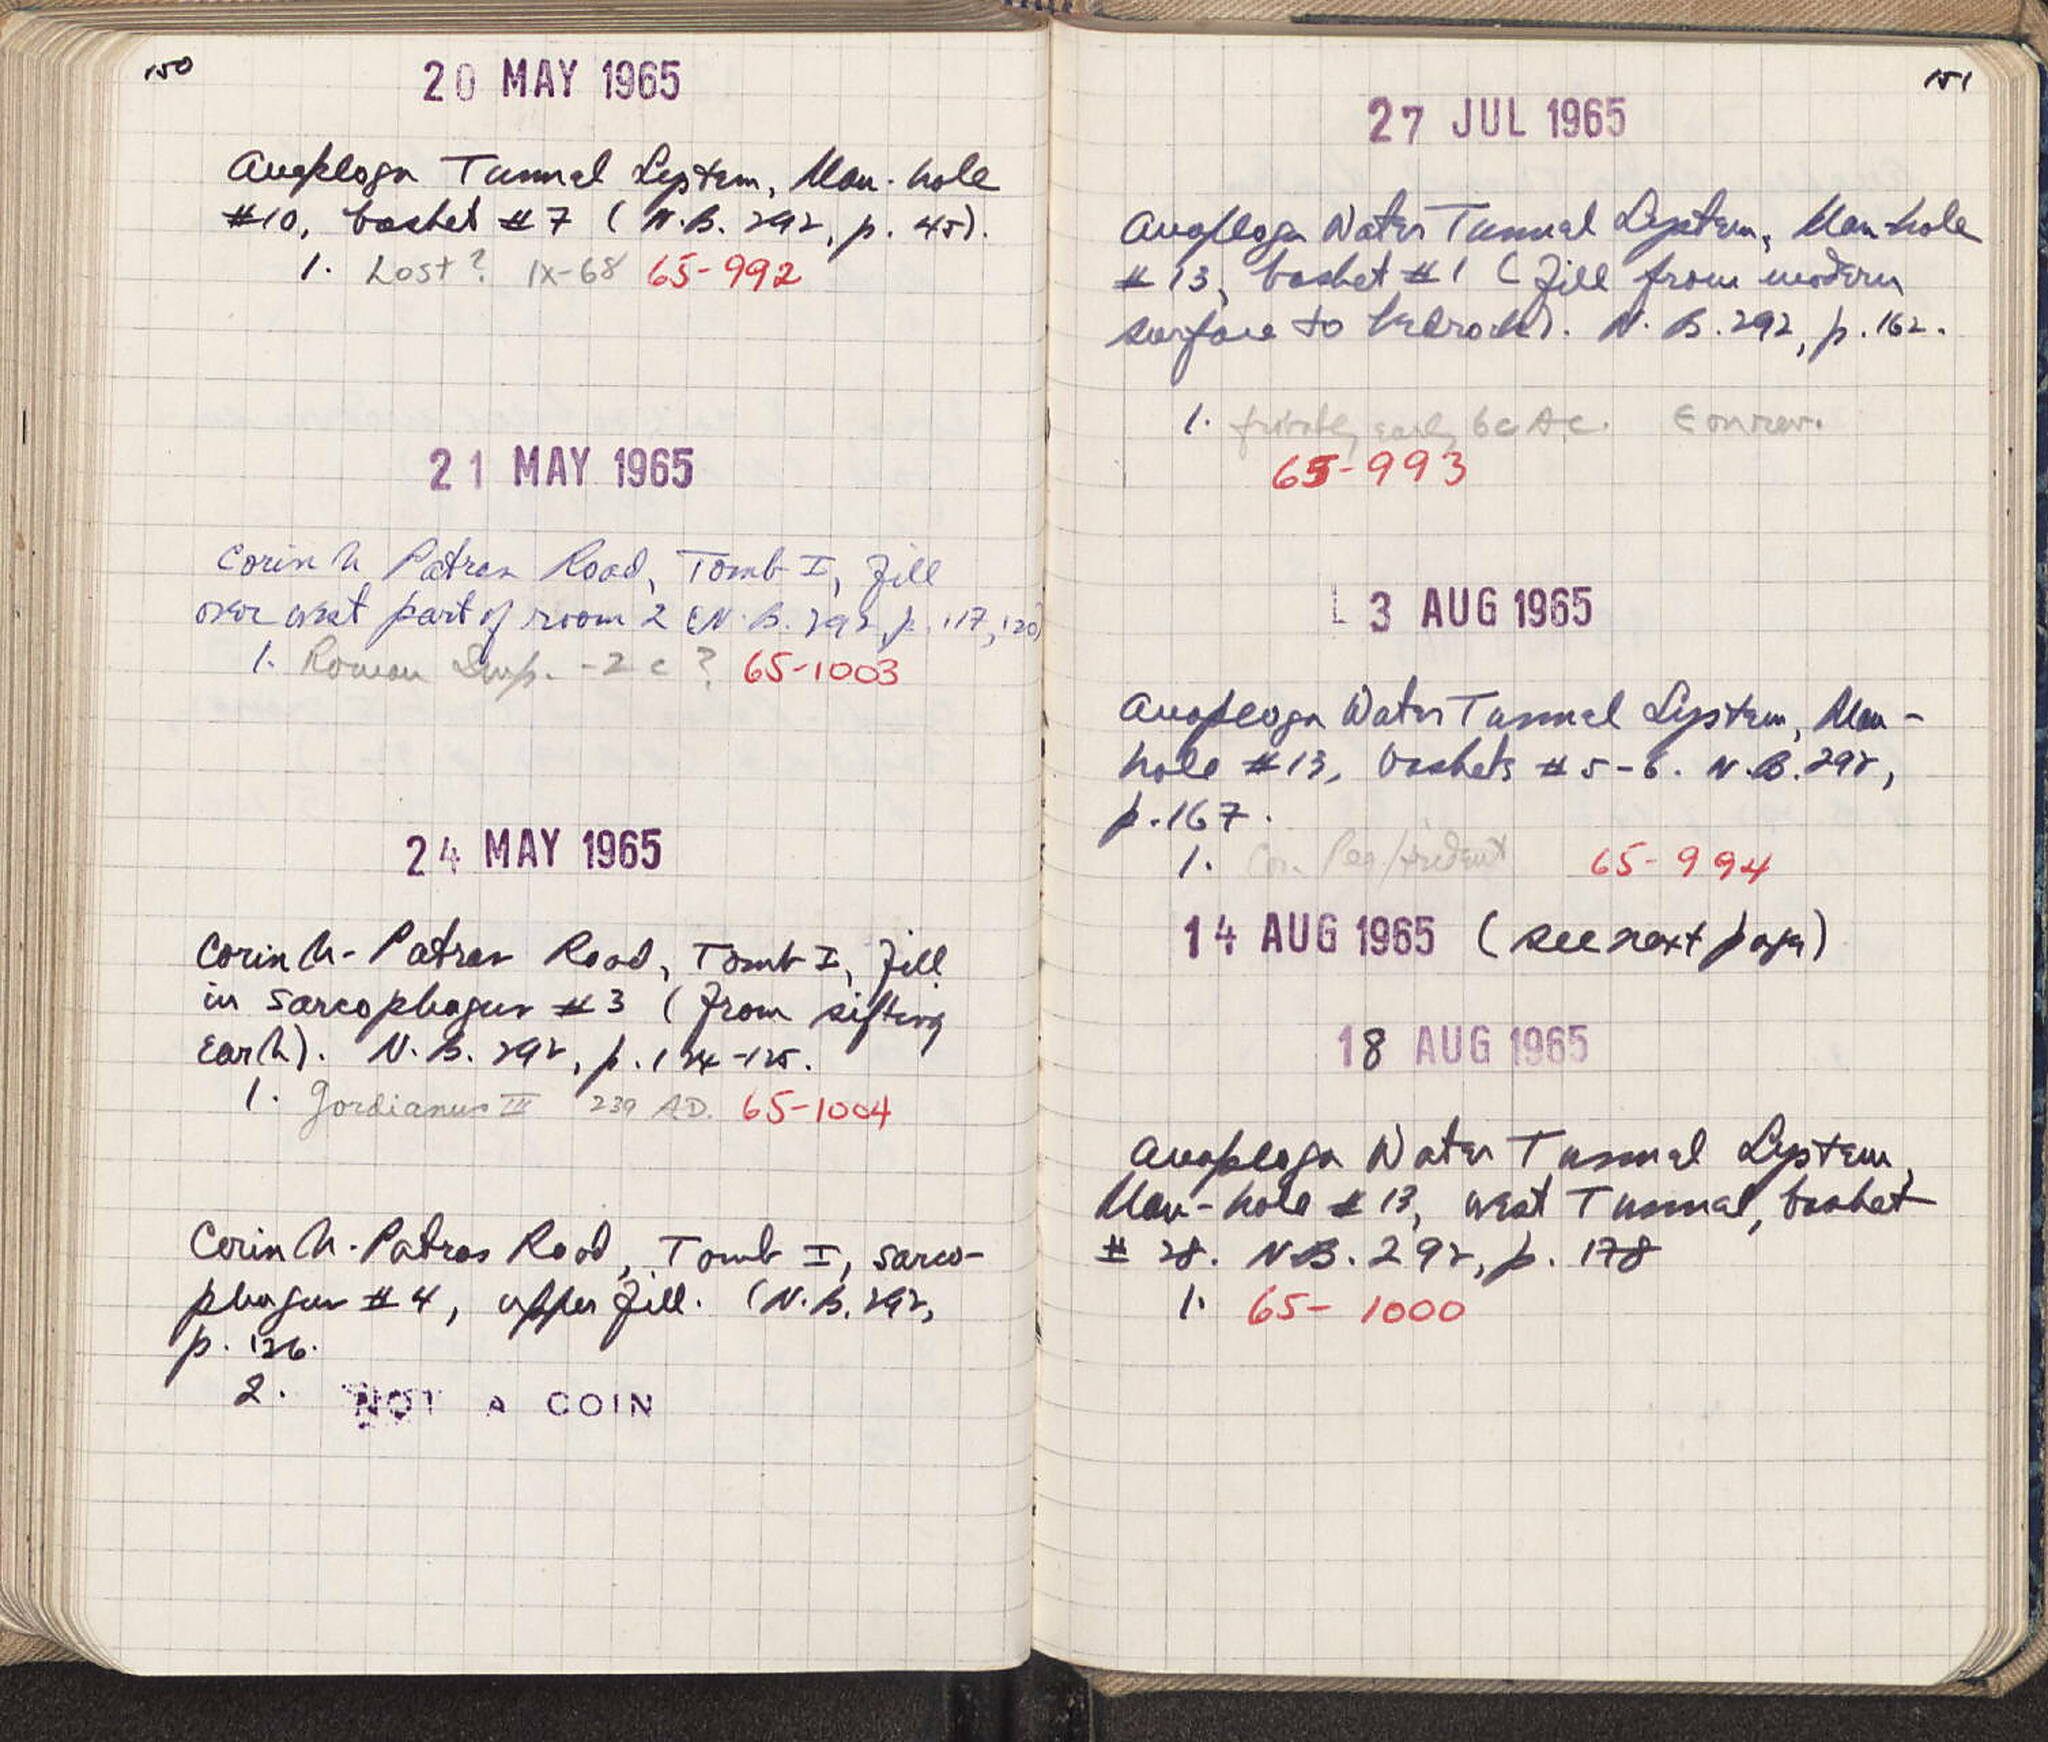 150
20 MAY 1965
Anaploga Tunnel System, Man-hole
#10, basket #7 (N.B. 292, p. 45).
1. Lost? IX-68 65-992
21 MAY 1965
Corinth Patras Road, Tomb I, fill
over west part of room 2 (N.B. 292, p. 117, 120)
1. Roman Imp. - 2 c ? 65-1003
24 MAY 1965
Corinth-Patras Road, Tomb I, fill
in sarcophagus #3 (from sifting
earth). N.B. 292, p. 124-125.
1. Gordianus III 239 A.D. 65-1004
Corinth-Patras Road, Tomb I, sarco-
phagus #4, upper fill. (N.B. 292,
p. 126.
2. NOT A COIN
151
27 JUL 1965
Anaploga Water Tunnel System, Man-hole
#13, basket #1 (fill from modern
surface to bedrock). N.B. 292, p. 162.
1. early 6c
65-993
3 AUG 1965
Anaploga Water Tunnel System, Man-
hole #13, baskets #5-6. N.B. 292,
p. 167.
1. Cor. Peg/trident 65-994
14 AUG 1965 (see next page)
18 AUG 1965
Anaploga Water Tunnel System,
Man-hole #13, west Tunnel, basket
#28. N.B. 292, p. 178
1. 65-1000